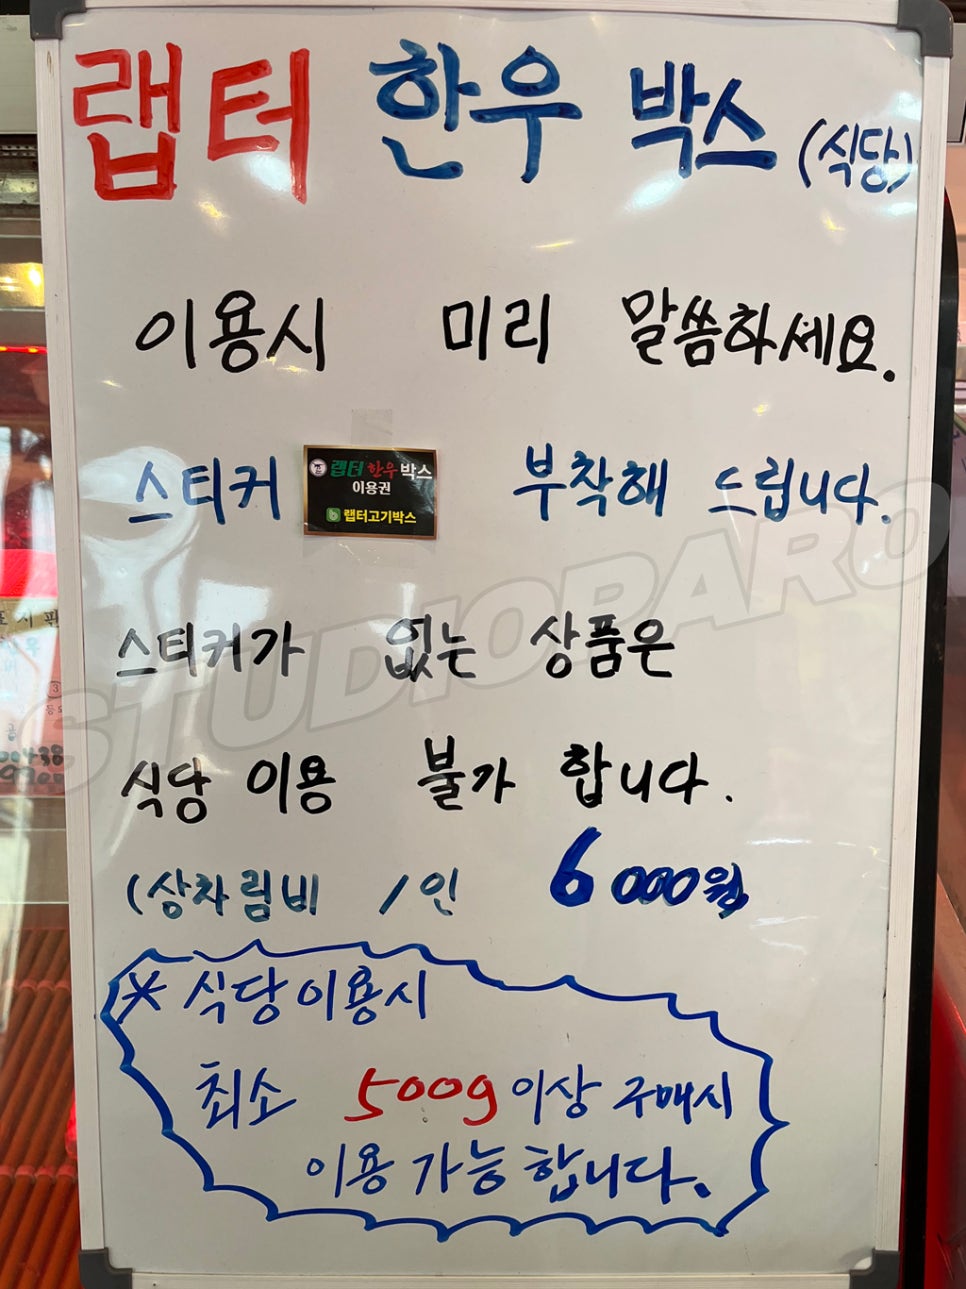 랩터 한우 박스 (식당)
이용시 미리 말씀하세요.
스티커 부착해 드립니다.
랩터 한우 박스
이용권
랩터고기박스
스티커가 없는 상품은
식당 이용 불가 합니다.
(상차림비 /인 6000원)
※ 식당이용시
최소 500g 이상 구매시
이용 가능합니다.
STUDIOPARO